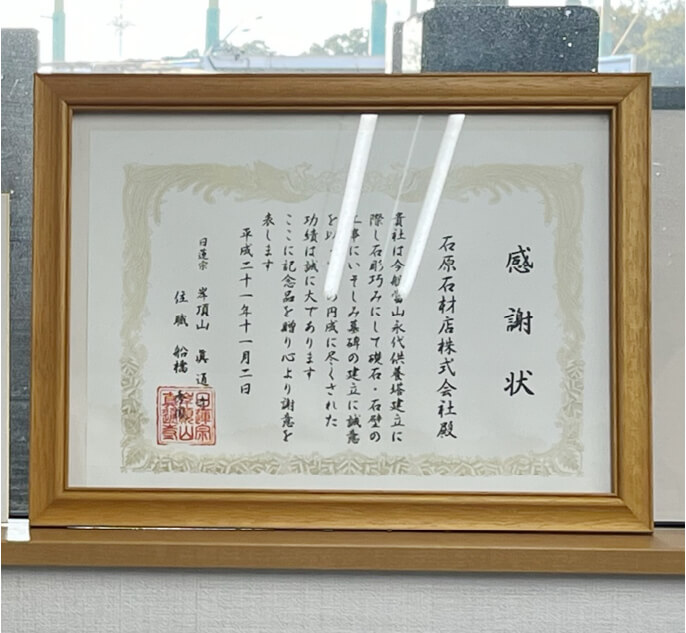 感謝状
石原石材店株式会社殿
貴社は今般当山永代供養塔建立に
際し石彫巧みにして礎石・石壁の
工事にいそしみ墓碑の建立に誠意
を以 の円成に尽くされた
功績は誠に大であります
ここに記念品を贈り心より謝意を
表します
平成二十一年十一月二日
日蓮宗 岸頂山 眞通
住職 船橋